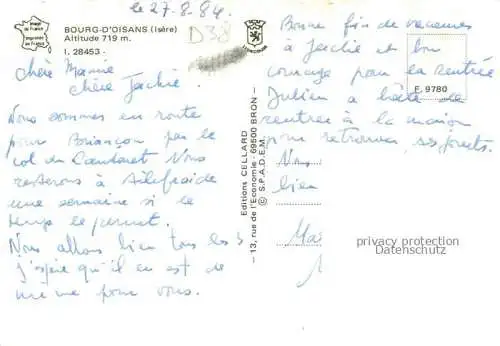 le 27-8-84.
D38
Image de France
Imprimée en France
BOURG-D'OISANS (Isère)
Altitude 719 m.
I. 28453 -
Chère Mamie
Chère Jackie.
Nous sommes en route
pour Briançon par le
col du Lautaret Nous
resterons à Ailefroide
une semaine si le
temps le permet.
Nous allons bien tous les 3
j'espère qu'il en est de
même pour vous.
Editions CELLARD
- 13, rue de l'Economie - 69500 BRON -
© S.P.A.D.E.M.
Bonne fin de vacances
à Jackie et bon
courage pour la rentrée
F. 9780
Julien a hâte de
rentrer à la maison
pour retrouver ses jouets.
Nous
bien
Ma
privacy protection
Datenschutz